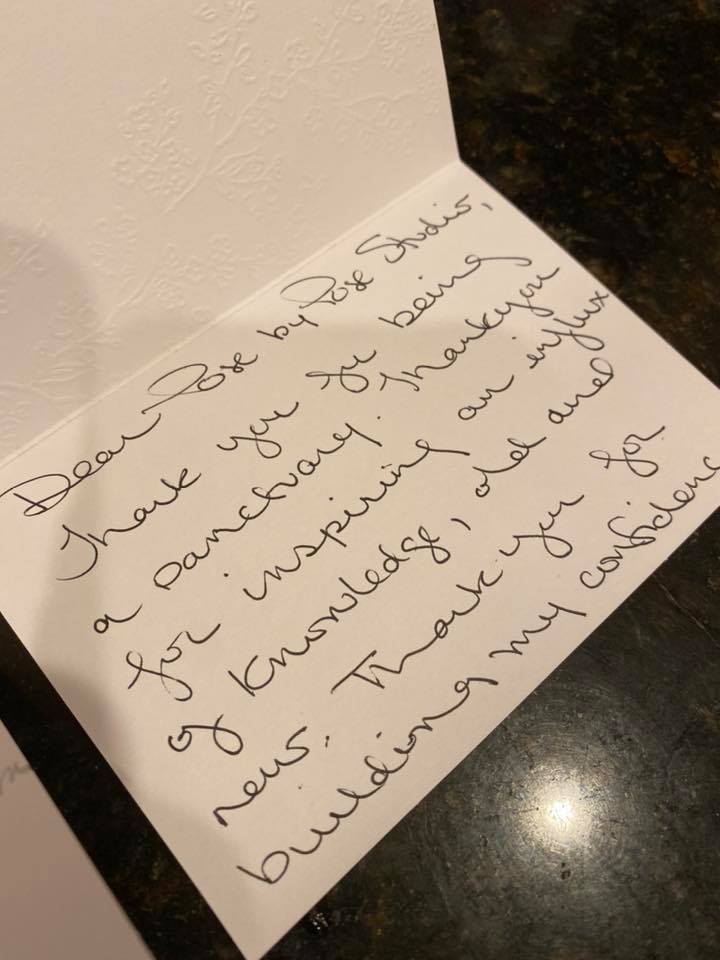 Dear Pose by Pose Studio,
Thank you for being
a sanctuary. Thankyou
for inspiring an influx
of knowledge, old and
new. Thank you for
building my confidenc